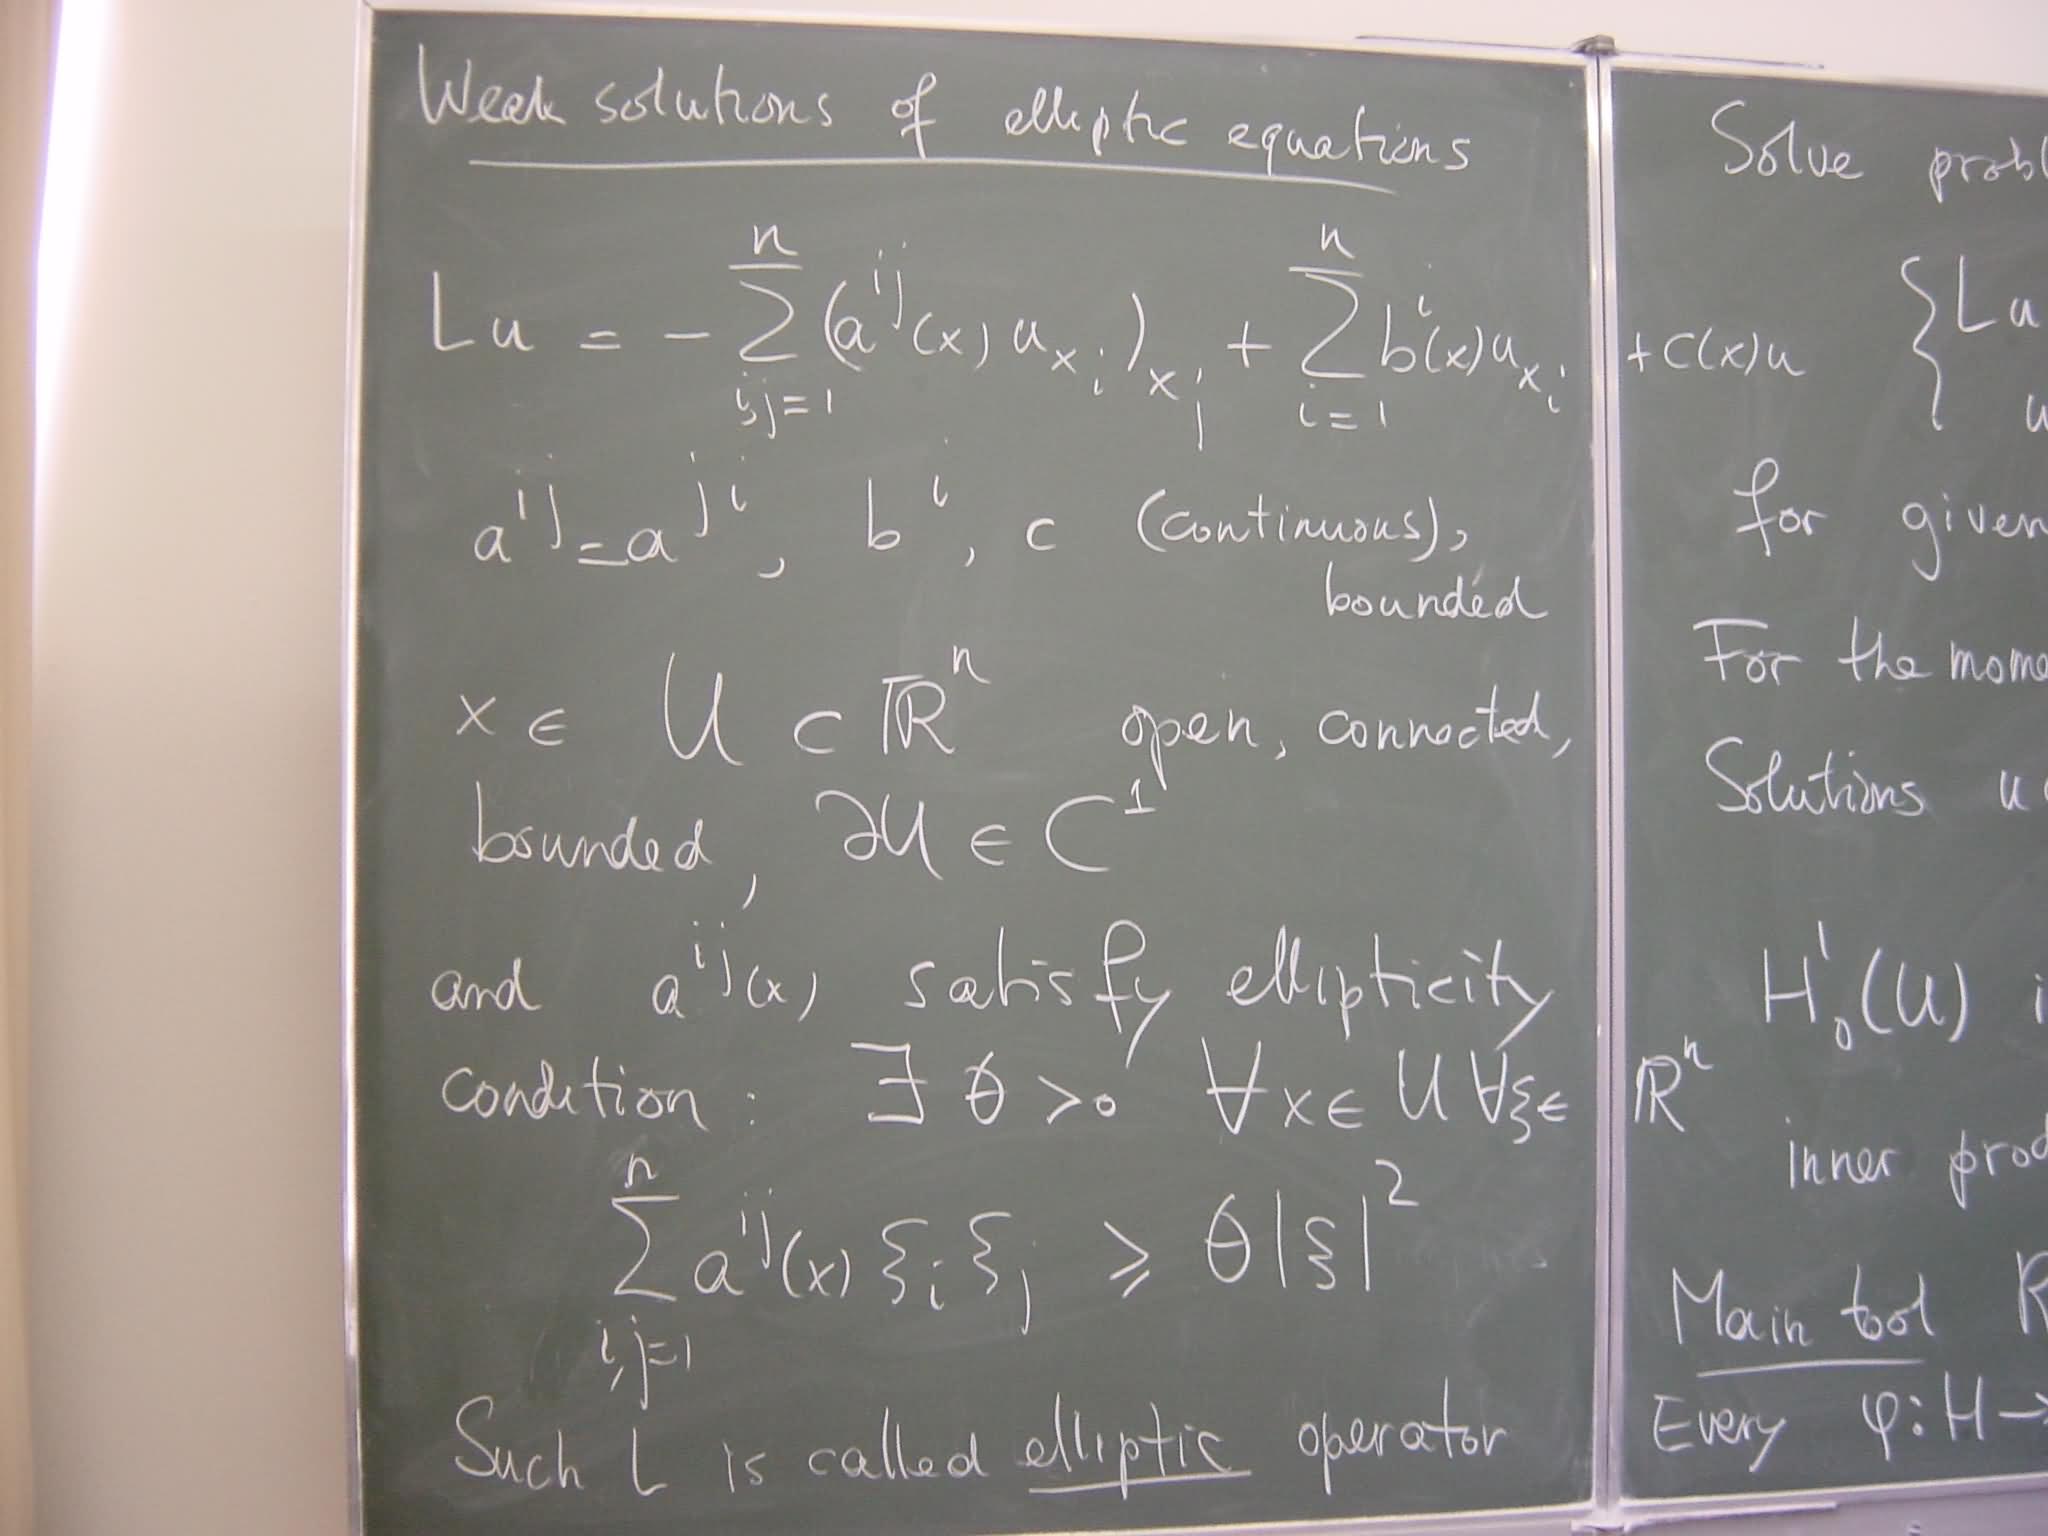 Weak solutions of elliptic equations
Lu = - ∑_{i,j=1}^{n} (a^{ij}(x) u_{x_i})_{x_j} + ∑_{i=1}^{n} b^i(x) u_{x_i} + c(x)u
a^{ij} = a^{ji}, b^i, c (continuous),
bounded
x ∈ U ⊂ ℝ^n open, connected,
bounded, ∂U ∈ C^1
and a^{ij}(x) satisfy ellipticity
condition: ∃ θ > 0 ∀ x ∈ U ∀ ξ ∈ ℝ^n
∑_{i,j=1}^{n} a^{ij}(x) ξ_i ξ_j ⩾ θ|ξ|^2
Such L is called elliptic operator
Solve
{ Lu
u
for given
For the
Solutions u
H^1_0(U)
inner
Main tool
Every φ: H →